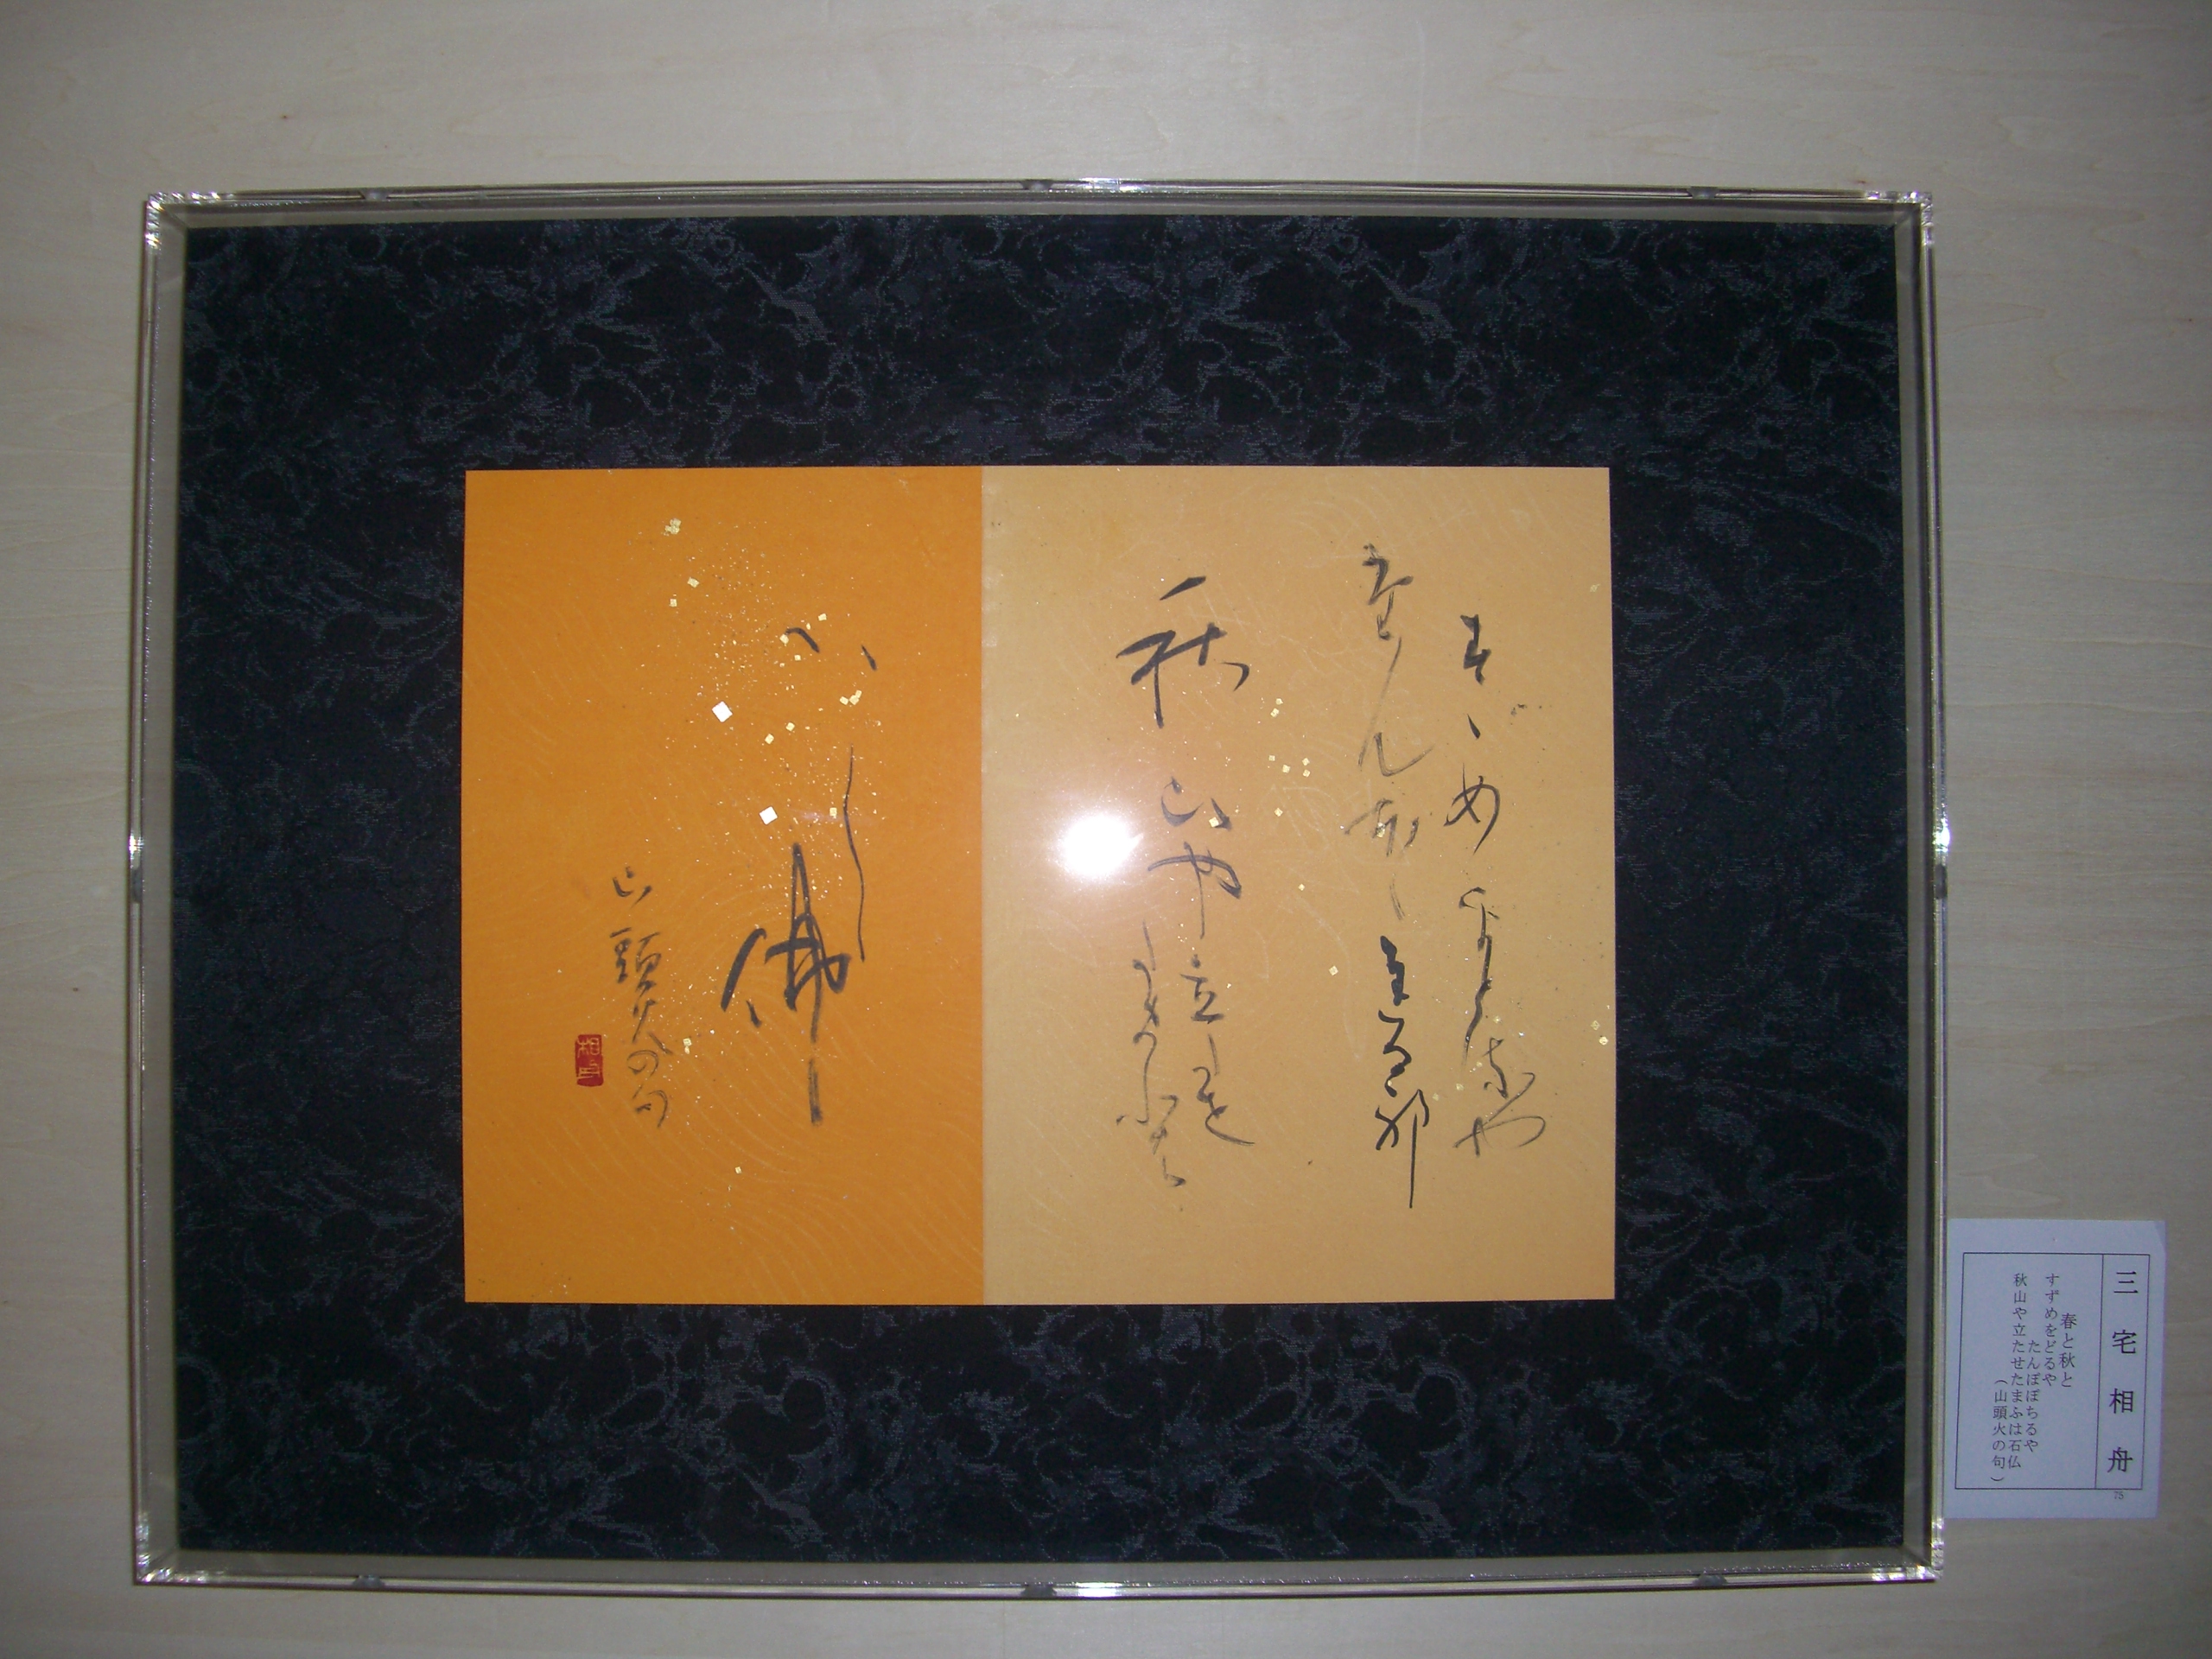 すゞめをどるや
たんぽゝちる耶
秋山や立たせ
たまふは
いし佛
山頭火の句
相舟
三宅相舟
春と秋と
すずめをどるや
たんぽぽちるや
秋山や立たせたまふは石仏
(山頭火の句)
75